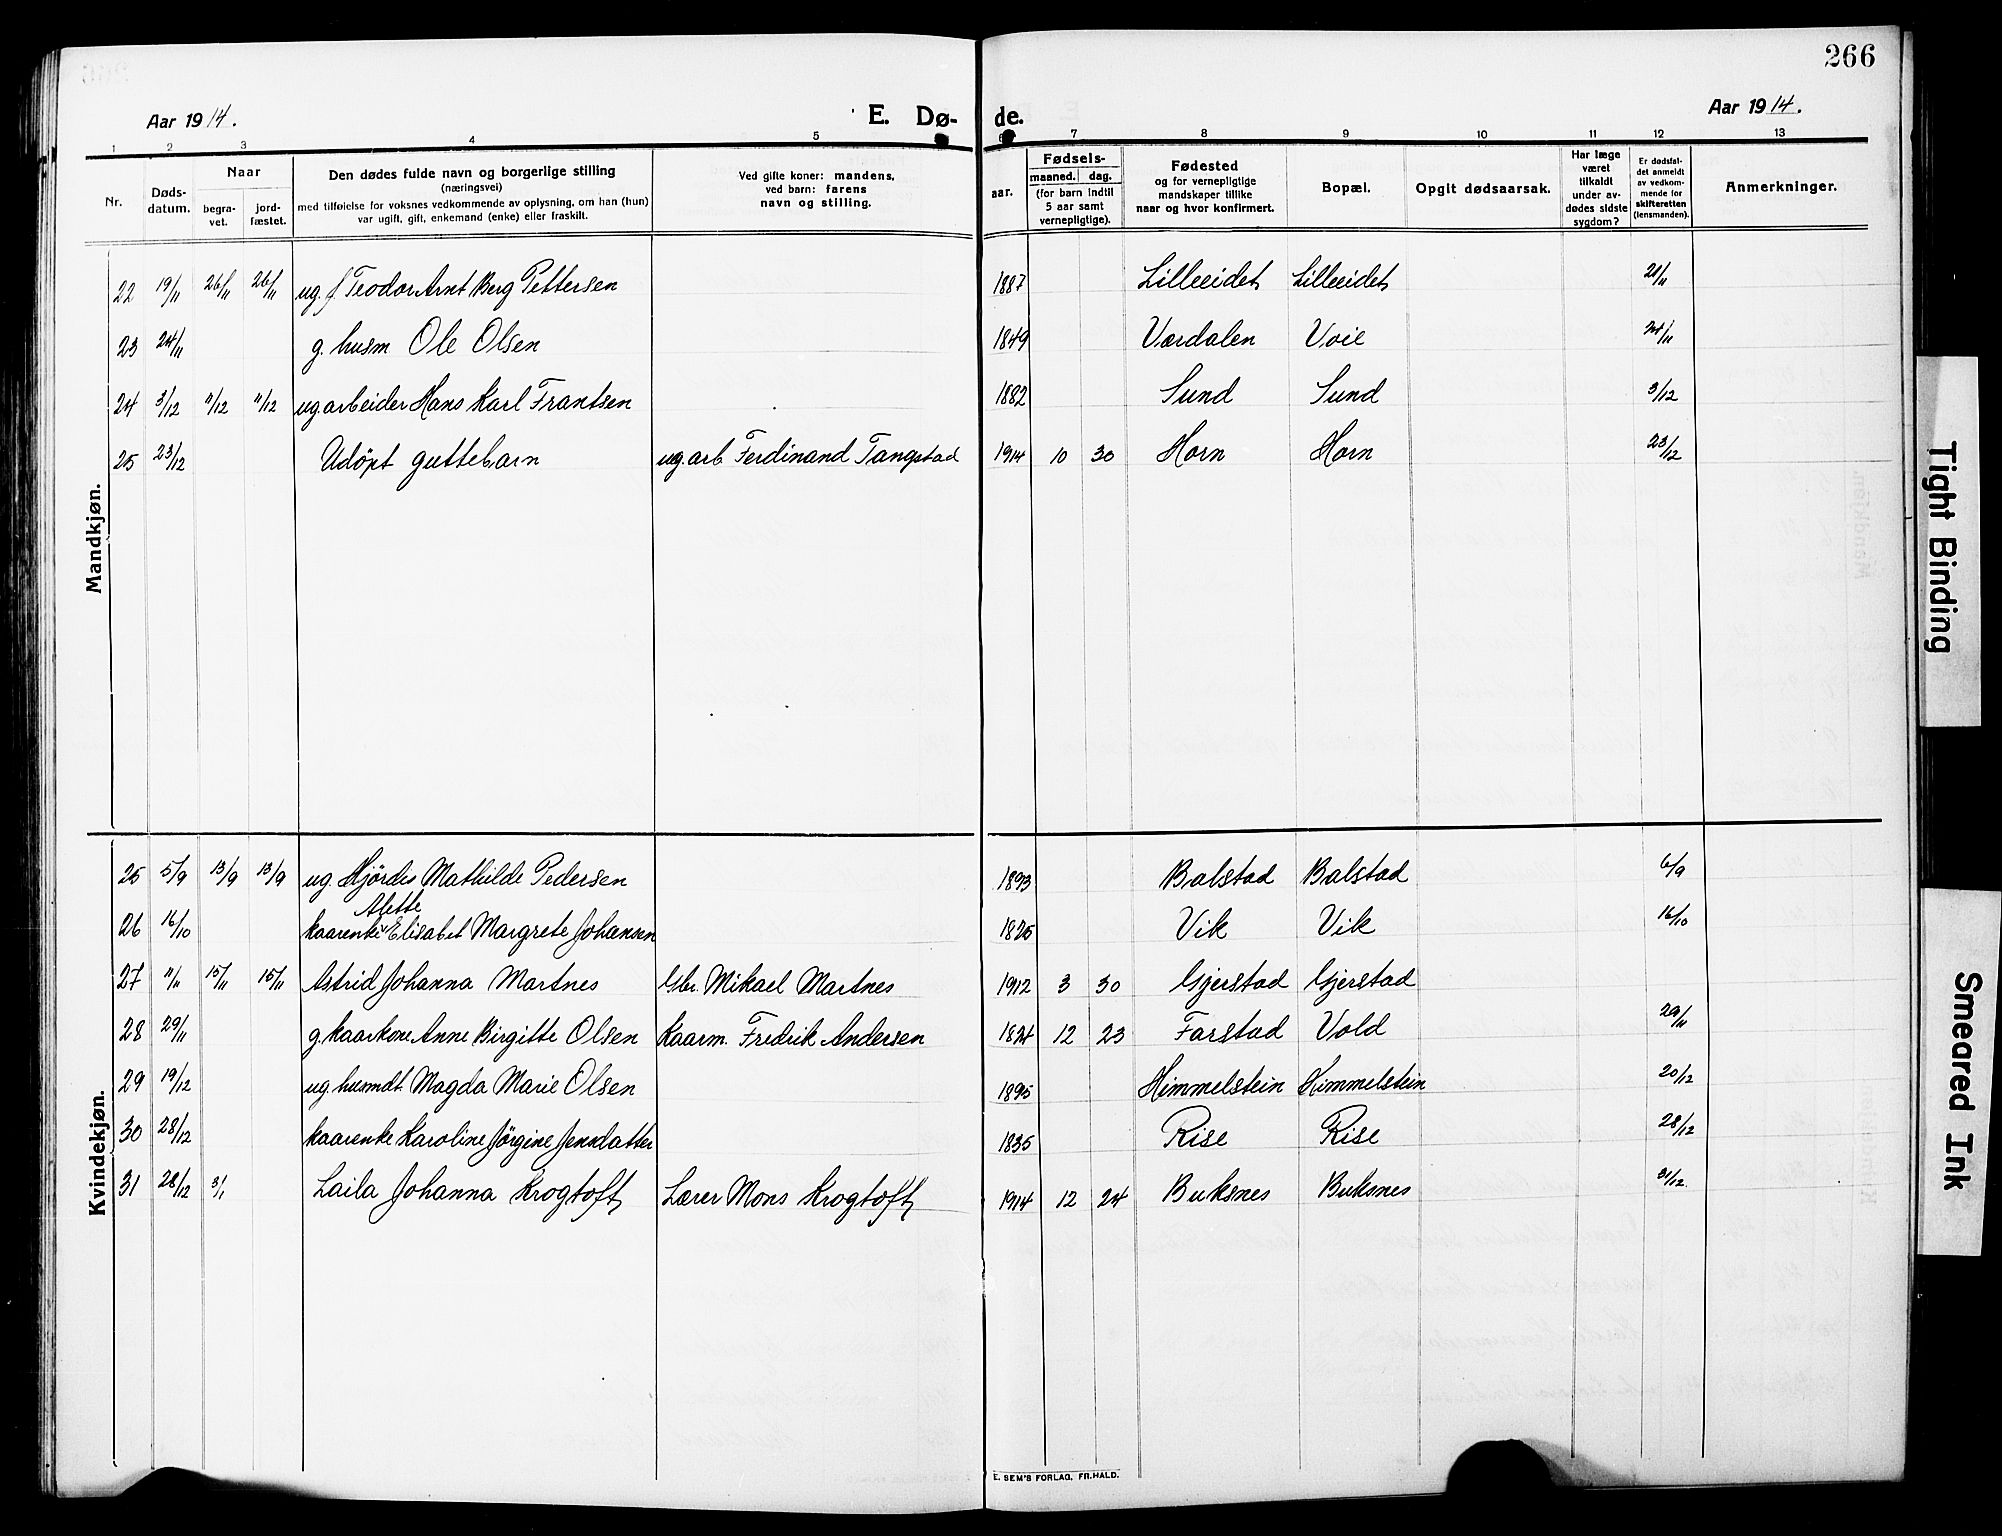 266
Aar 1914.
E. Dø-
de.
Aar 1914.
1 2 3 4 5 6 7 8 9 10 11 12 13
Nr.
Døds-
datum.
Naar
begra-
vet.
jord-
fæstet.
Den dødes fulde navn og borgerlige stilling
(næringsvei)
med tilføielse for voksnes vedkommende av oplysning, om han (hun)
var ugift, gift, enkemand (enke) eller fraskilt.
Ved gifte koner: mandens,
ved barn: farens
navn og stilling.
aar.
Fødsels-
maaned. dag.
(for barn indtil
5 aar samt
vernepligtige).
Fødested
og for vernepligtige
mandskaper tillike
naar og hvor konfirmert.
Bopæl.
Opgit dødsaarsak.
Har læge
været
tilkaldt
under av-
dødes sidste
sygdom?
Er dødsfal-
det anmeldt
av vedkom-
mende for
skifteretten
(lensmanden).
Anmerkninger.
Mandkjøn.
22 19/11 26/11 26/11 ug. f Teodor Arnt Berg Pettersen 1887 Lilleeidet Lilleeidet 21/11
23 24/11 g. husm Ole Olsen 1849 Værdalen Voie 24/11
24 3/12 11/12 11/12 ug arbeider Hans Karl Frantsen 1882 Sund Sund 3/12
25 23/12 Udöpt guttebarn ug. arb Ferdinand Tangstad 1914 10 30 Horn Horn 23/12
Kvindekjøn.
25 5/9 13/9 13/9 ug. Hjördis Mathilde Pedersen 1893 Balstad Balstad 6/9
Alette
26 16/10 kaarenke Elisabet Margrete Johansen 1825 Vik Vik 16/10
27 11/11 15/11 15/11 Astrid Johanna Martnes Gbr. Mikael Martnes 1912 3 30 Gjerstad Gjerstad
28 29/11 g. kaarkone Anne Birgitte Olsen Kaarm. Fredrik Andersen 1824 12 23 Farstad Vold 29/11
29 19/12 ug. husmdt. Magda Marie Olsen 1895 Himmelstein Himmelstein 20/12
30 28/12 kaarenke Karoline Jörgine Jensdatter 1835 Rise Rise 28/12
31 28/12 3/1 Laila Johanna Krogtoft Lærer Mons Krogtoft 1914 12 24 Buksnes Buksnes 31/12.
E. SEM'S FORLAG, FR.HALD.
Tight Binding
Smeared Ink